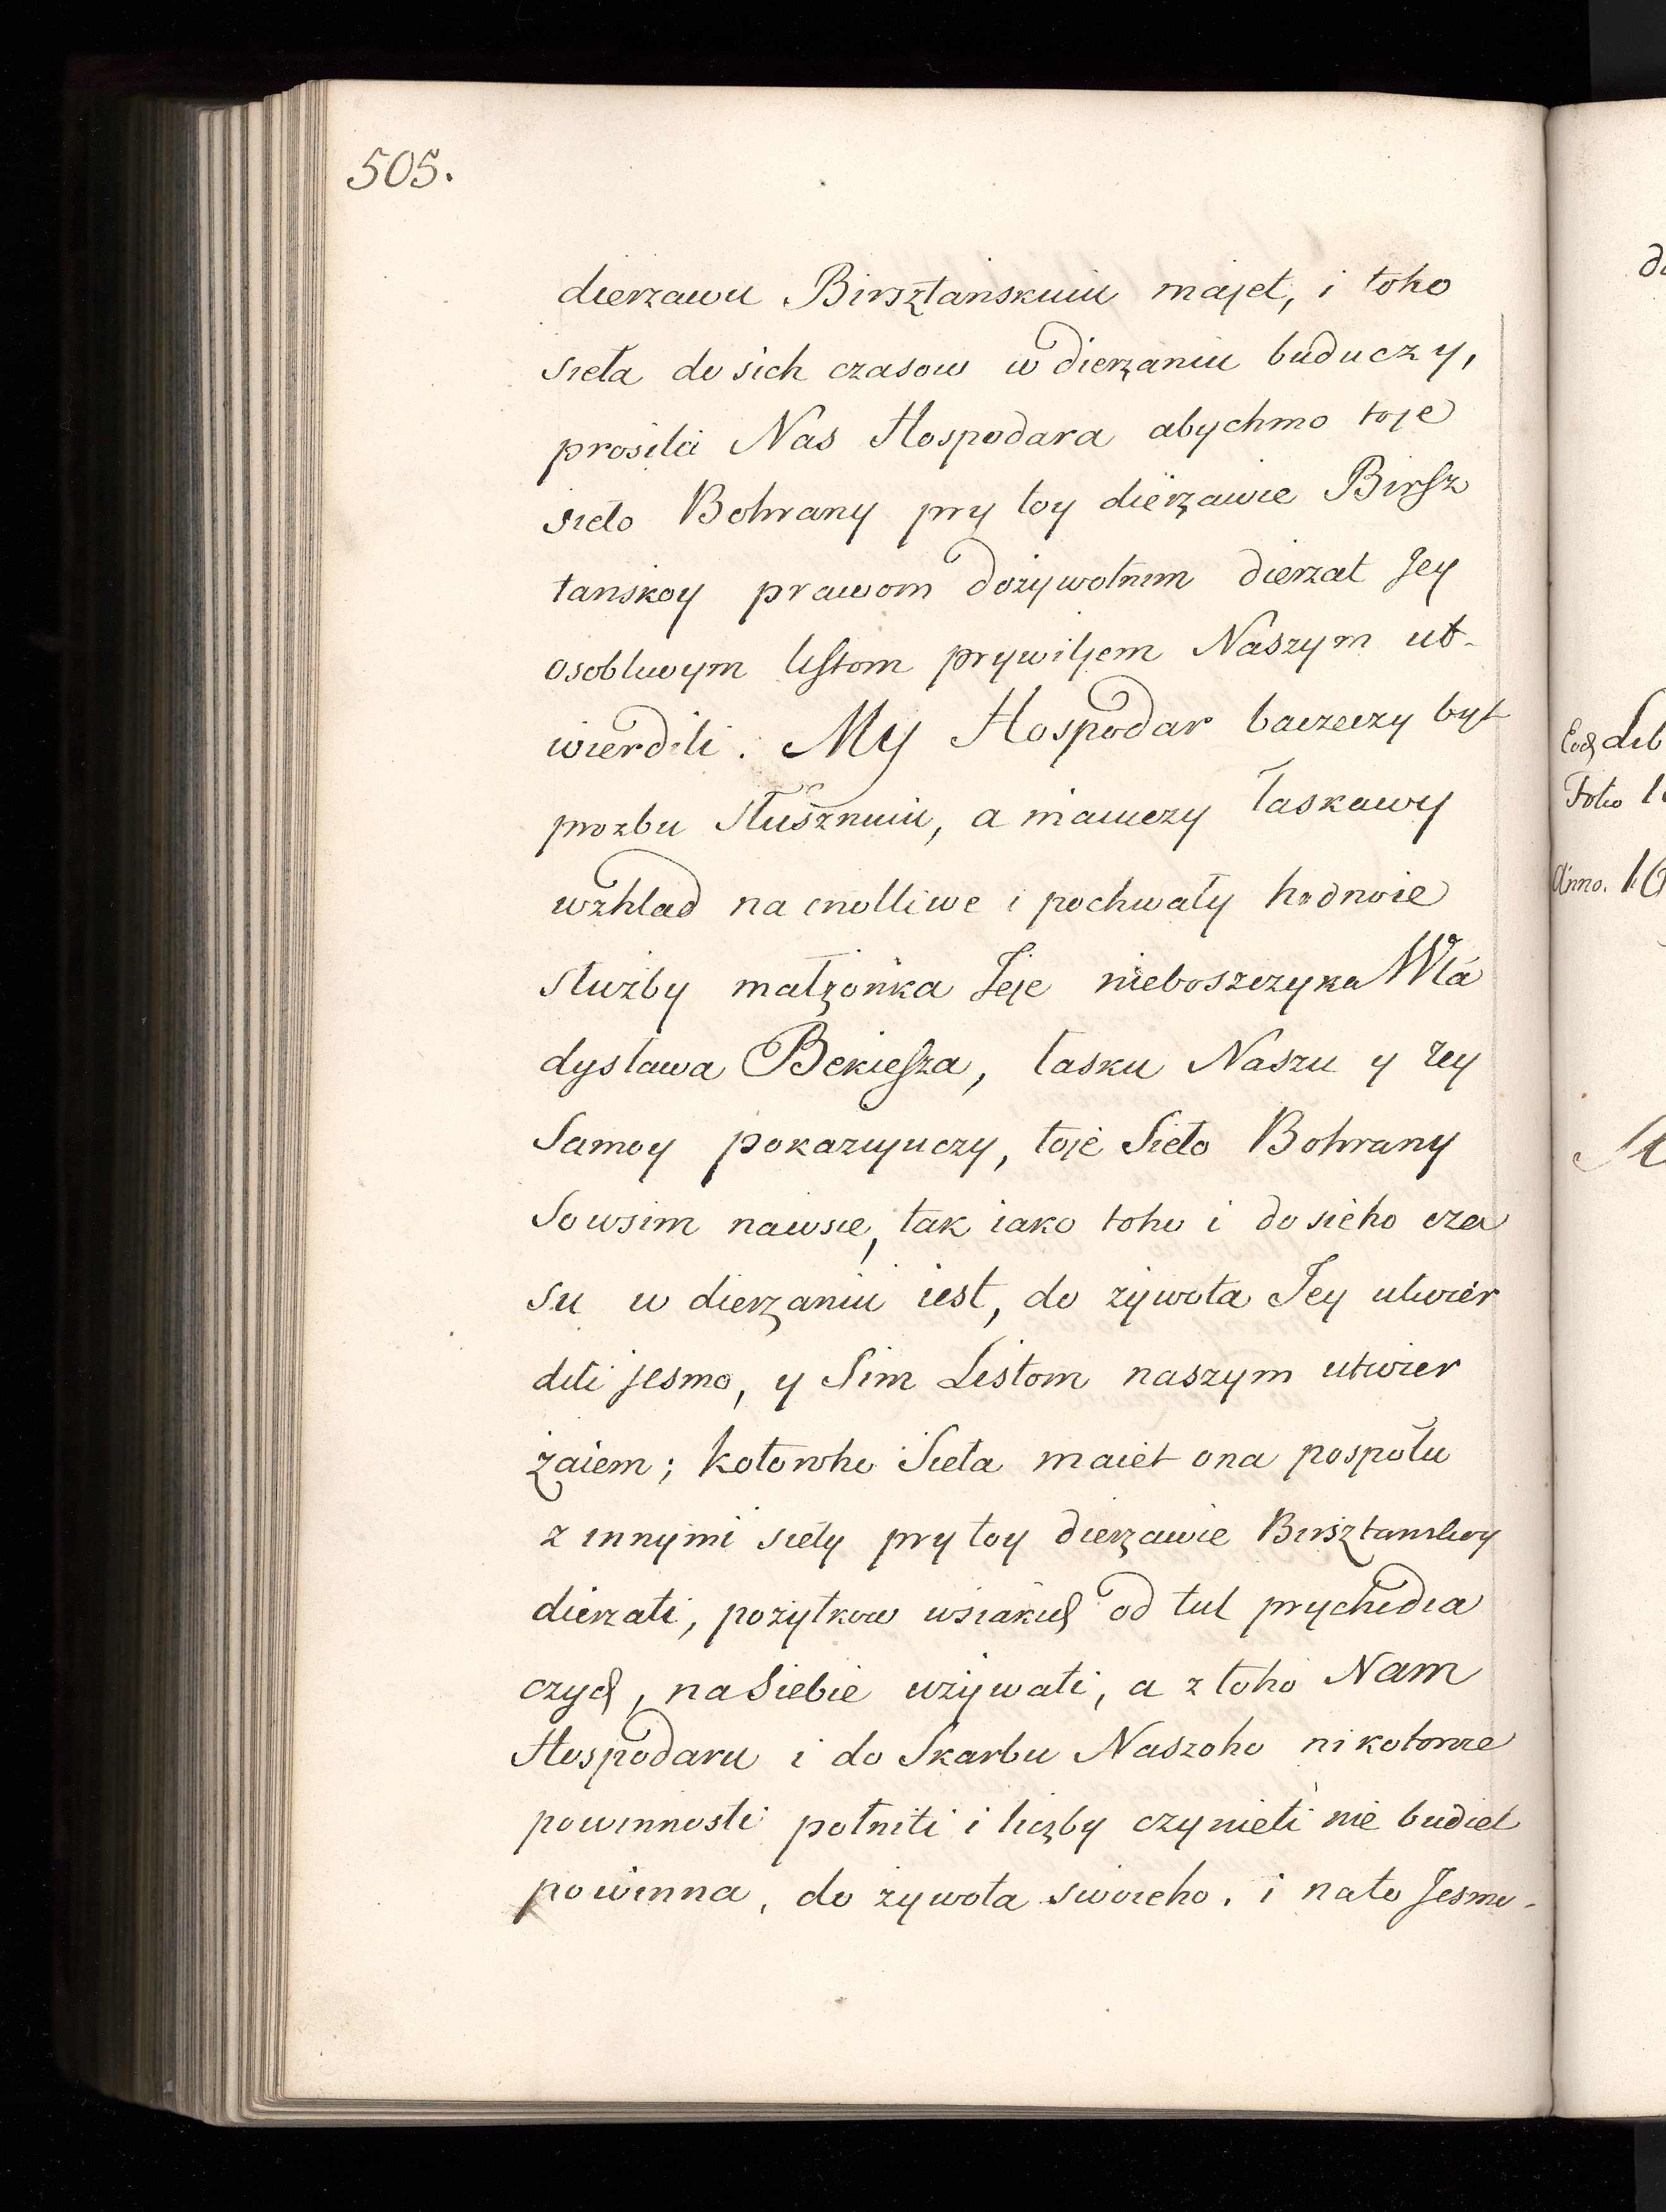 505.
dierzawu Birsztanskuiu majet, i toho
sieła do sich czasow w dierżaniu buduczy,
prosiła Nas Hospodara abychmo toje
sieło Bohrany pry toy dierżawie Birsz
tanskoy prawom dożywotnim dierżat Jey
osobliwym listom prywiljem Naszym ut-
wierdili. My Hospodar baczeczy byt
prozbu słusznuiu, a maiuczy łaskawy
wzhlad na cnotliwe i pochwały hodnoie
służby małżonka Jeje nieboszczyka Wła
dysława Bekiesza, łasku Naszu y Jey
Samoy pokazujuczy, toje Sieło Bohrany
Sowsim nawsie, tak iako toho i do sieho cza
su w dierżaniu iest, do żywota Jey utwier
dili jesmo, y Sim Listom naszym utwier
żaiem; kotoroho Sieła maiet ona pospołu
z innymi sieły pry toy dierżawie Birsztanskoy
dierzati, pożytkow wsiakich od tul prychidia
czych, na Siebie używati, a z toho Nam
Hospodaru i do Skarbu Naszoho ni kotoroie
powinnosti połniti i liczby czynieti nie budiet
powinna, do żywota swoieho, i nato Jesmo-
Lib
Folio 1
Anno. 16